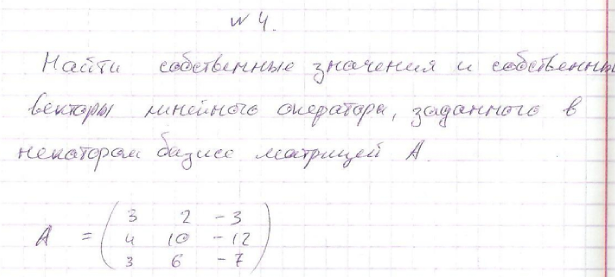 № 4.
Найти собственные значения и собственны
векторы линейного оператора, заданного в
некотором базисе матрицей A.
A = ( 3 2 -3
4 10 -12
3 6 -7 )